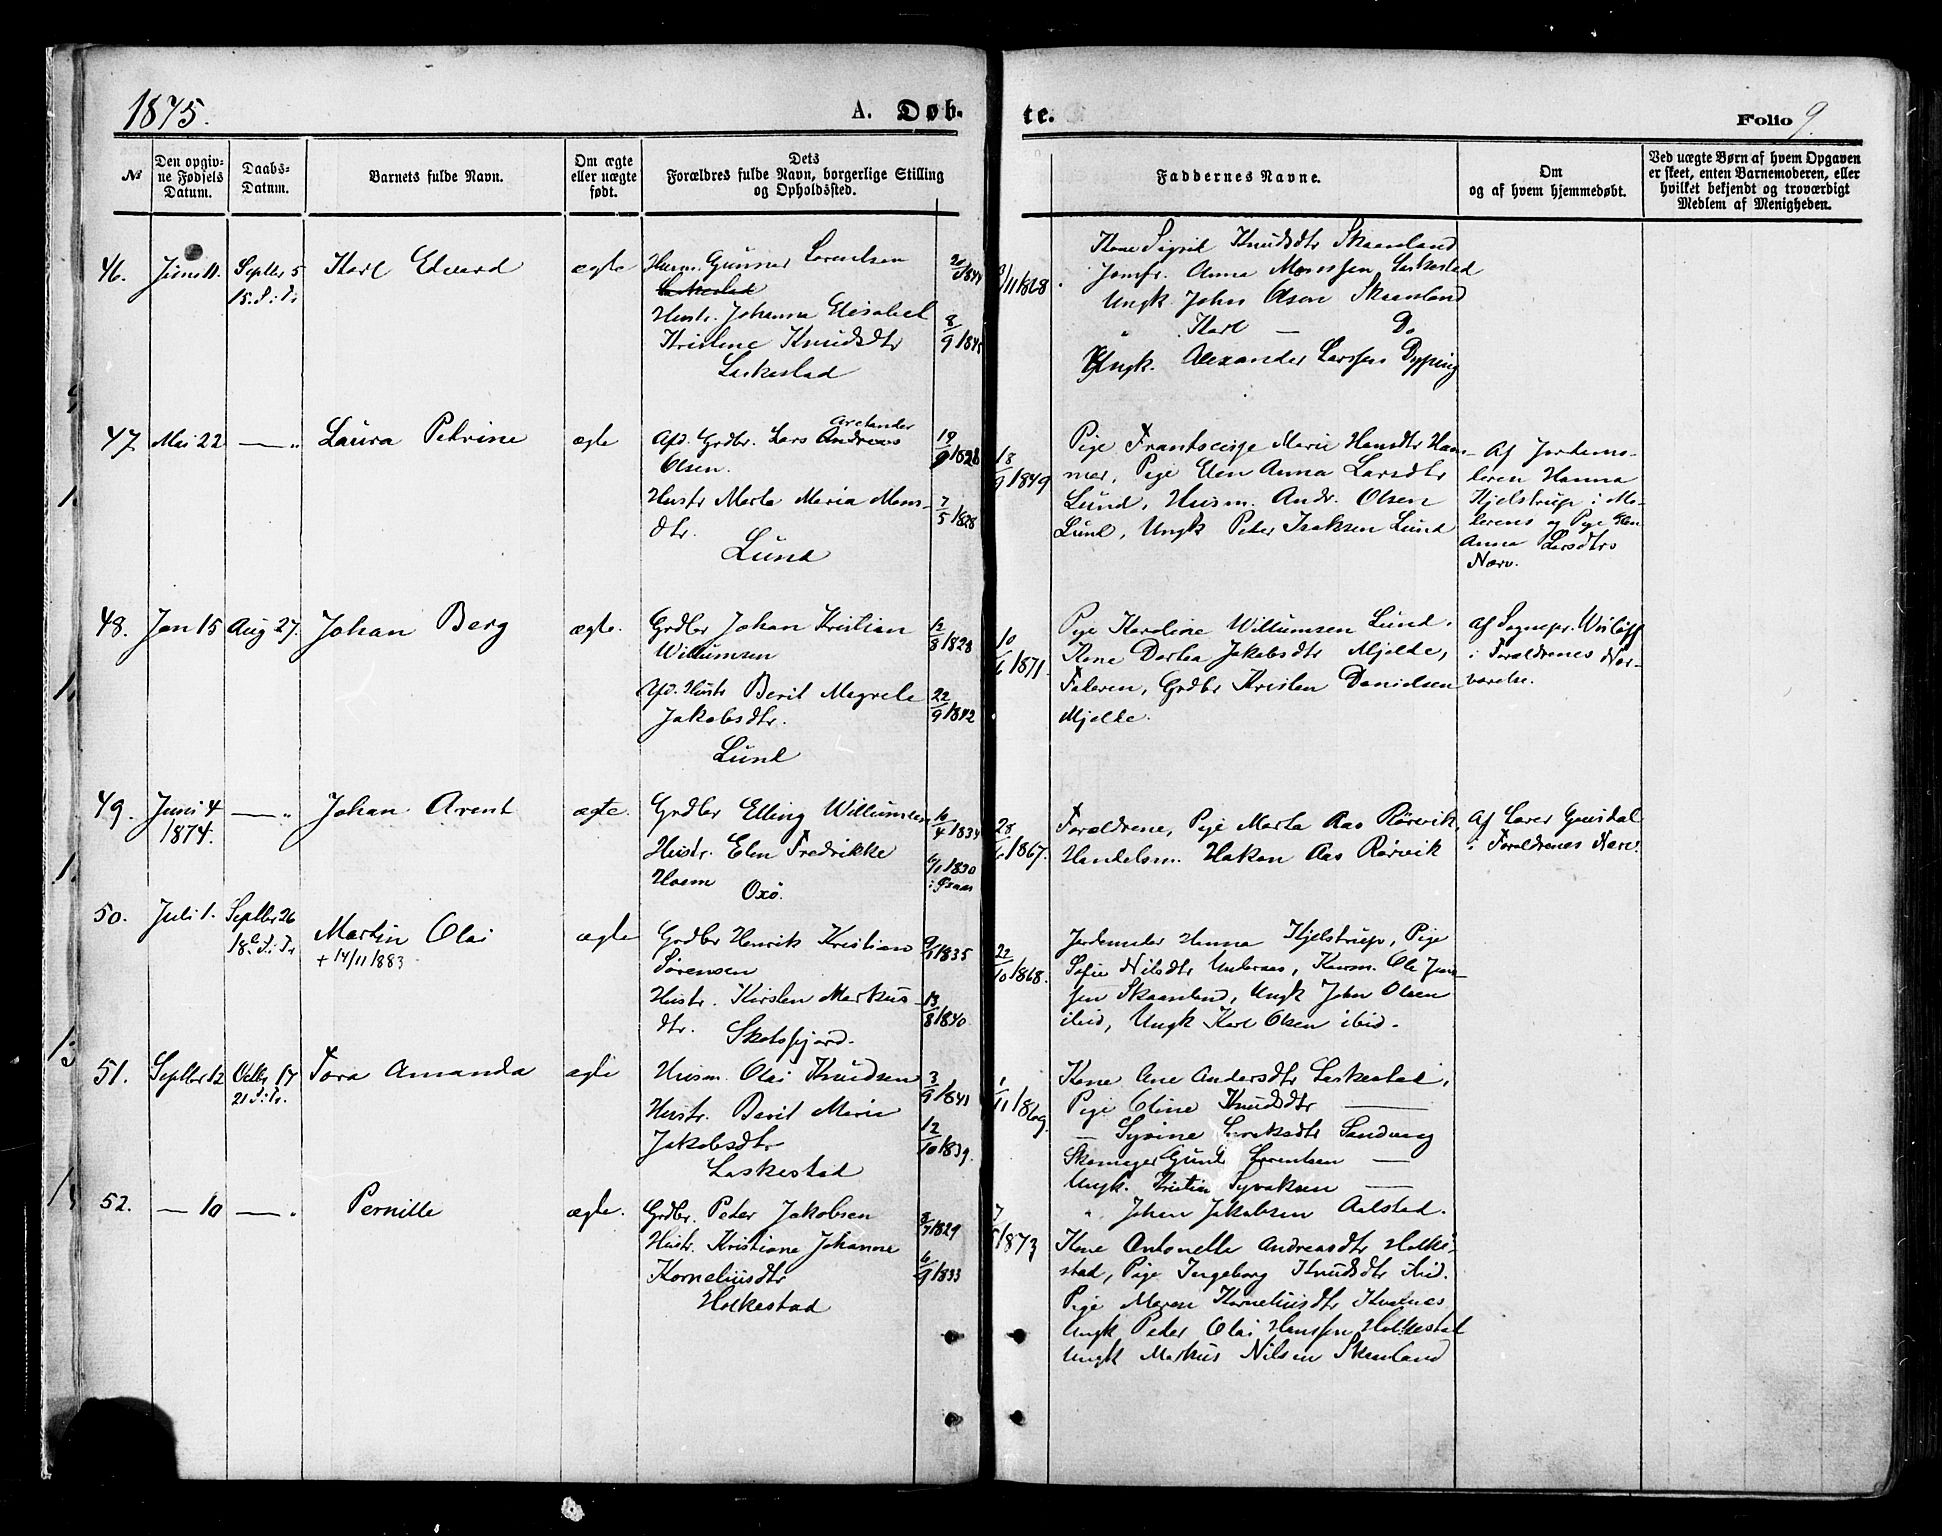 1875.
A. Døb-
te.
Folio 9.
№
Den opgiv-
ne Fødsels
Datum.
Daabs-
Datum.
Barnets fulde Navn.
Om ægte
eller uægte
født.
Dets
Forældres fulde Navn, borgerlige Stilling
og Opholdssted.
Faddernes Navne.
Om
og af hvem hjemmedøbt.
Ved uægte Børn af hvem Opgaven
er skeet, enten Barnemoderen, eller
hvilket bekjendt og troværdigt
Medlem af Menigheden.
46. Juni 11. Septbr 5
15. S. i. Tr
Karl Edvard
ægte
Husm. Gunnar Lorentsen
Hustr. Johanna Elisabet
8/9 1845
Kristine Knudsdtr
Laskestad
/11 1868
Kone Sigrid Knudsdtr Skaanland
Jomfr. Anna Monssen Laskestad
Ungk John Olsen Skaanland
" Karl — Do
Ungk. Alexander Larssen Dyping
47. Mai 22 — "
Laura Petrine
ægte
Grdbr. Lars Andreas
Olsen.
19/9 1828
Hustr Marta Maria Mons-
dtr.
7/5 1828
Lund
18/9 1849
Pige Frantscisje Marie Hansdtr Ham-
mar, Pige Elen Anna Larsdtr
Lund, Husm. Andr. Olsen
Lund, Ungk Peter Isaksen Lund
Af Jordemo-
deren Hanna
Kjelstrup i Mo-
derens og Pige Elen
Anna Larsdtrs
Nærv.
48. Jan 15 Aug 27.
Johan Berg
ægte.
Grdbr Johan Kristian
Willumsen
12/8 1828
Hustr Berit Magrete
Jakobsdtr.
22/9 1842
Lund
10/6 1871.
Pige Karoline Willumsen Lund.
Kone Dortea Jakobsdtr Mjelde,
Faderen, Grdbr Kristen Danielsen
Mjelde.
Af Sognepr. Wisløff
i Forældrenes Nær-
værelse.
49. Juni 4
1874.
— "
Johan Arent
ægte.
Grdbr Elling Willumsen
16/4 1834
Hustr. Elen Fredrikke
Hoem
1830
Oxö.
28/ 1867.
Forældrene, Pige Marta Aas Rörvik,
Handelsm. Hakon Aas Rørvik
Af Lærer Gausdal
i Forældrenes Nærv.
50. Juli 1. Septbr 26
18. S. i. Tr
Martin Olai
+ 14/11 1883
ægte
Grdbr Henrik Kristian
Sørensen
1835
Hustr. Kirsten Markus-
dtr.
13/8 1840.
Skotsfjord.
22/10 1868.
Jordemoder Hanna Kjelstrup, Pige
Sofie Nilsdtr Undernes, Karm. Ole Jens-
sen Skaanland, Ungk John Olsen
ibid, Ungk Karl Olsen ibid.
51. Septbr 12 Octbr 17
21 S. i. Tr.
Tora Amanda
ægte
Husm. Olai Knudsen
3/9 1841
Hustr. Berit Marie
Jakobsdtr
12/10 1839.
Laskestad
1/11 1869.
Kone Ane Andersdtr Laskestad,
Pige Oline Knudsdtr —
— Syvine Syvaksdtr Sandvaag
Skomager Gund Lorentsen —
Ungk. Kristian Syvaksen —
" Johan Jakobsen Aalstad.
52. — 10 — "
Pernille
ægte.
Grdbr. Peter Jakobsen
1829
Hustr. Kristiane Johanne
Korneliusdtr
6/9 1833
Holkestad
1873
Kone Antonette Andreasdtr Holke-
stad, Pige Ingeborg Knudsdtr ibid.
Pige Maren Korneliusdtr Kvalnes
Ungk Peder Olai Hanssen Holkestad
Ungk Markus Nilsen Skaanland